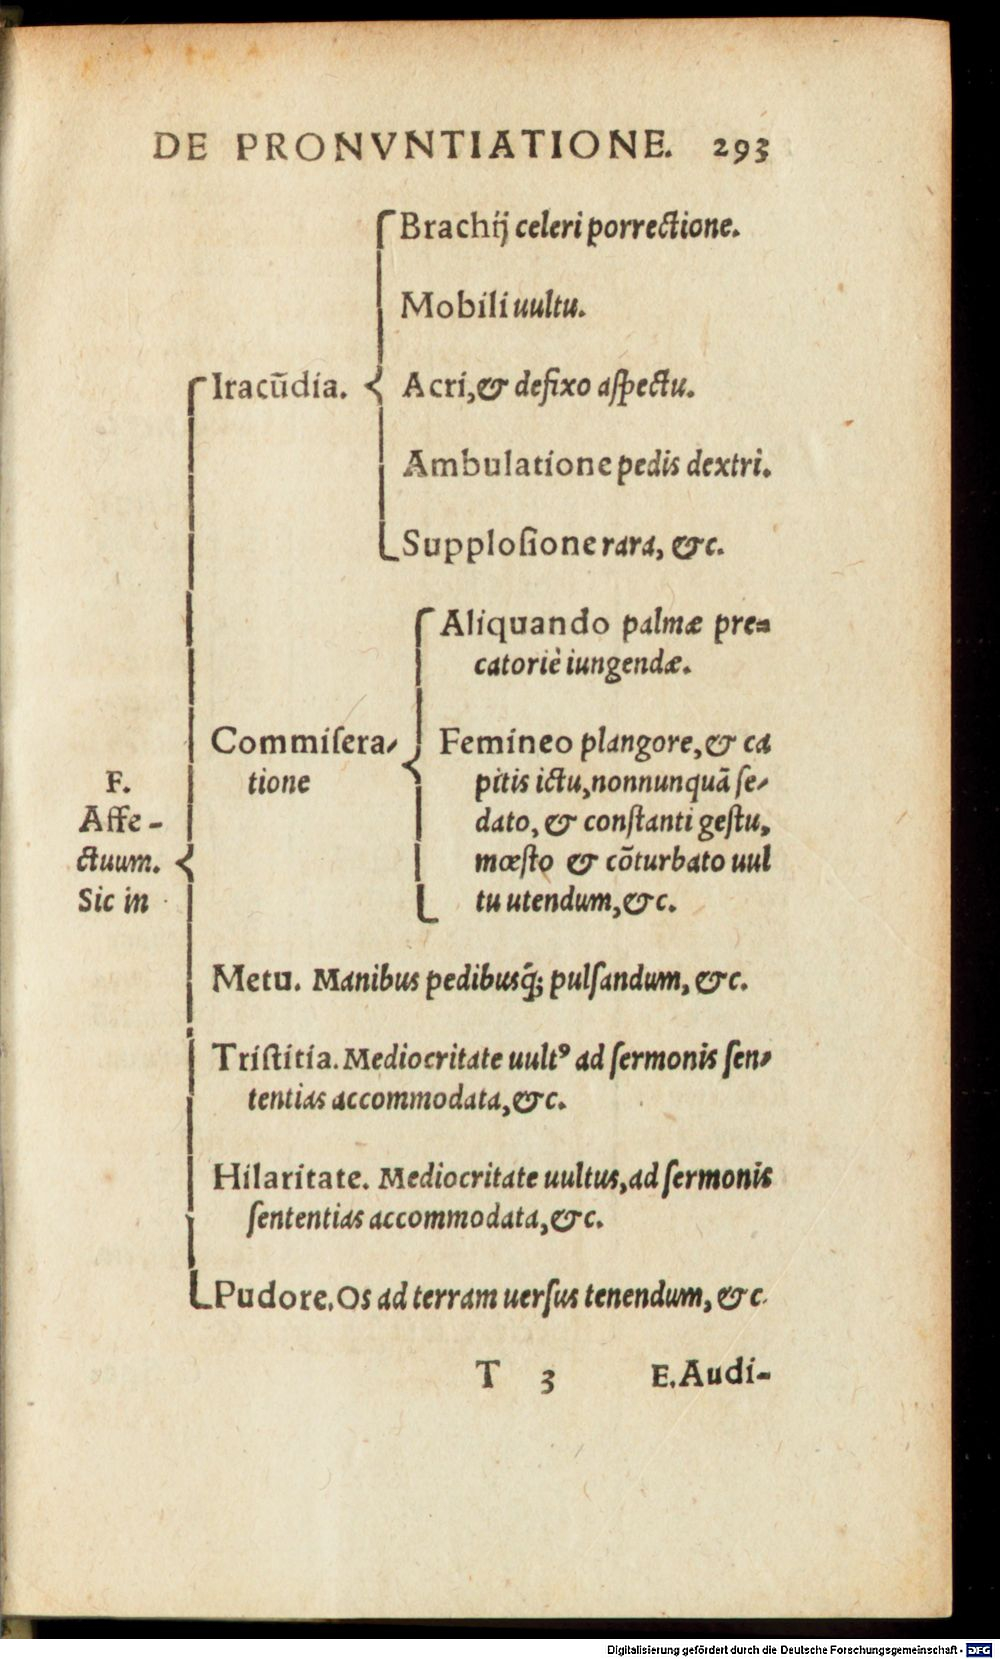 DE PRONVNTIATIONE. 293
F.
Affe-
ctuum.
Sic in
Iracūdia.
Brachij celeri porrectione.
Mobili uultu.
Acri, & defixo aſpectu.
Ambulatione pedis dextri.
Supploſione rara, &c.
Commiſera-
tione
Aliquando palmæ pre-
catoriè iungendæ.
Femineo plangore, & ca
pitis ictu, nonnunquā ſe-
dato, & conſtanti geſtu,
mœſto & cōturbato uul
tu utendum, &c.
Metu. Manibus pedibusq̃; pulſandum, &c.
Triſtitia. Mediocritate uultꝰ ad ſermonis ſen-
tentias accommodata, &c.
Hilaritate. Mediocritate uultus, ad ſermonis
ſententias accommodata, &c.
Pudore. Os ad terram uerſus tenendum, &c.
T 3 E. Audi-
Digitalisierung gefördert durch die Deutsche Forschungsgemeinschaft - DFG